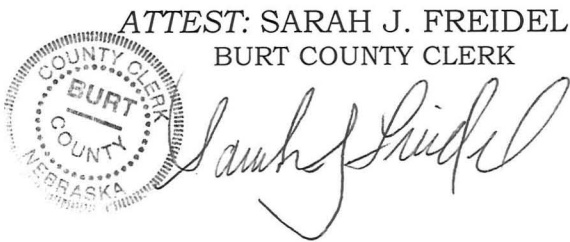 ATTEST: SARAH J. FREIDEL
BURT COUNTY CLERK
COUNTY CLERK
BURT
COUNTY
NEBRASKA
Sarah J Freidel